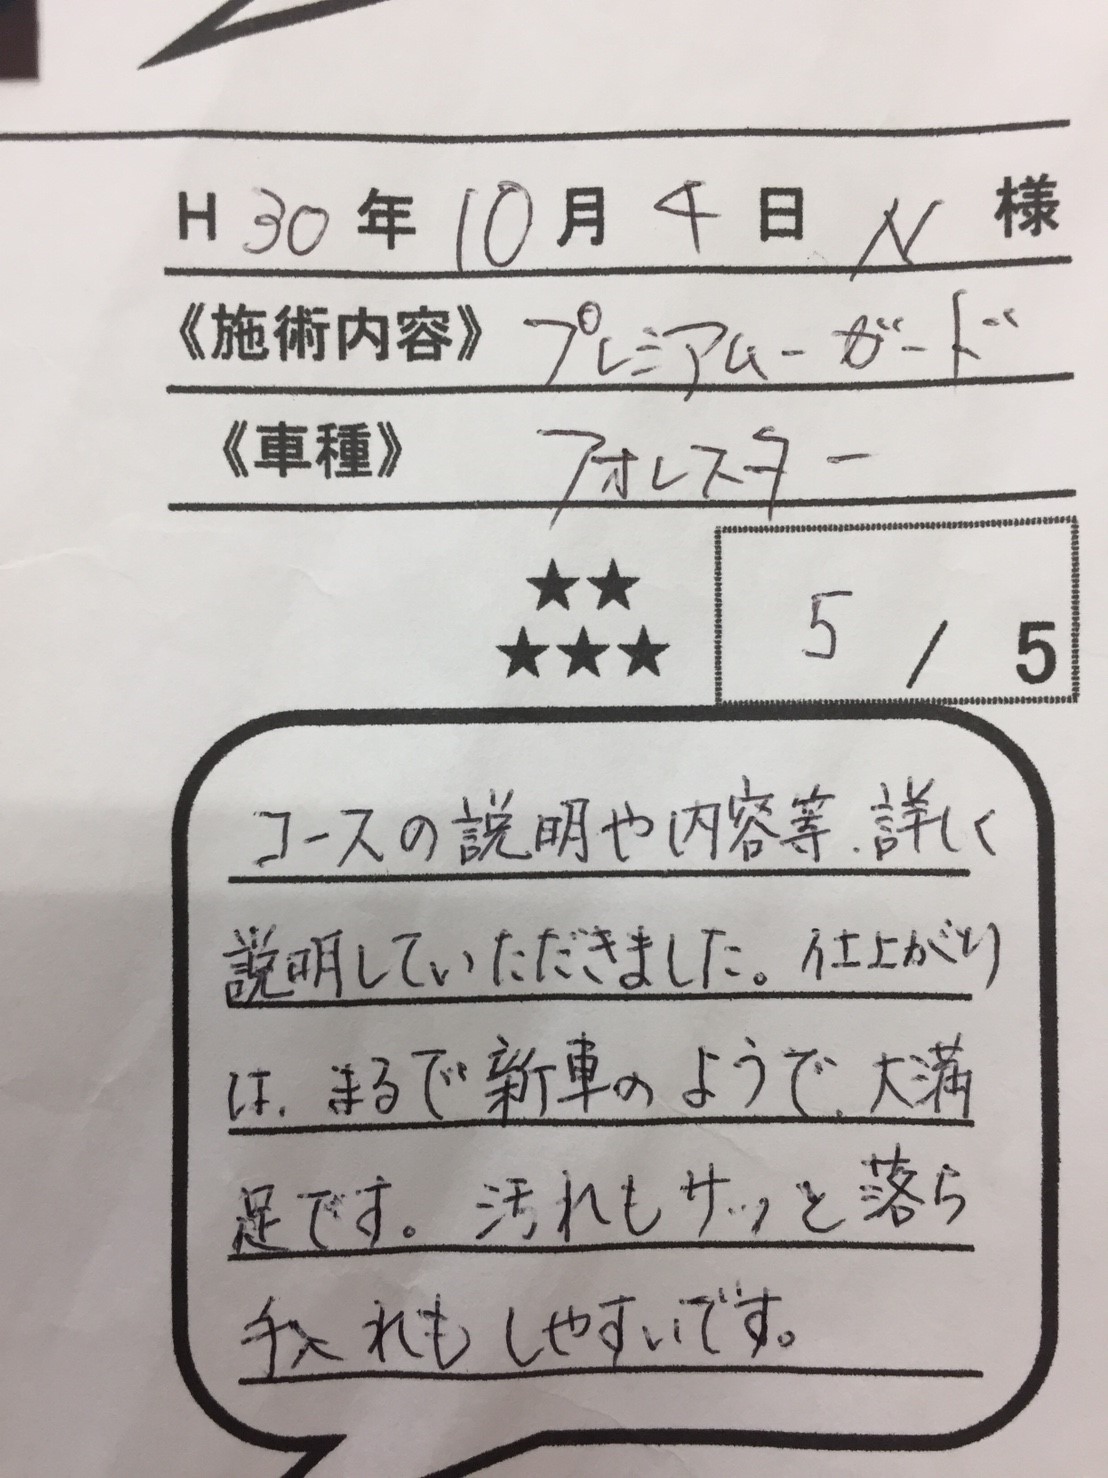 H 30 年 10 月 4 日 N 様
《施術内容》 プレミアムーガード
《車種》 フォレスター
★★
★★★ 5 / 5
コースの説明や内容等、詳しく
説明していただきました。仕上がり
は、まるで新車のようで、大満
足です。汚れもサッと落ら
手入れもしやすいです。